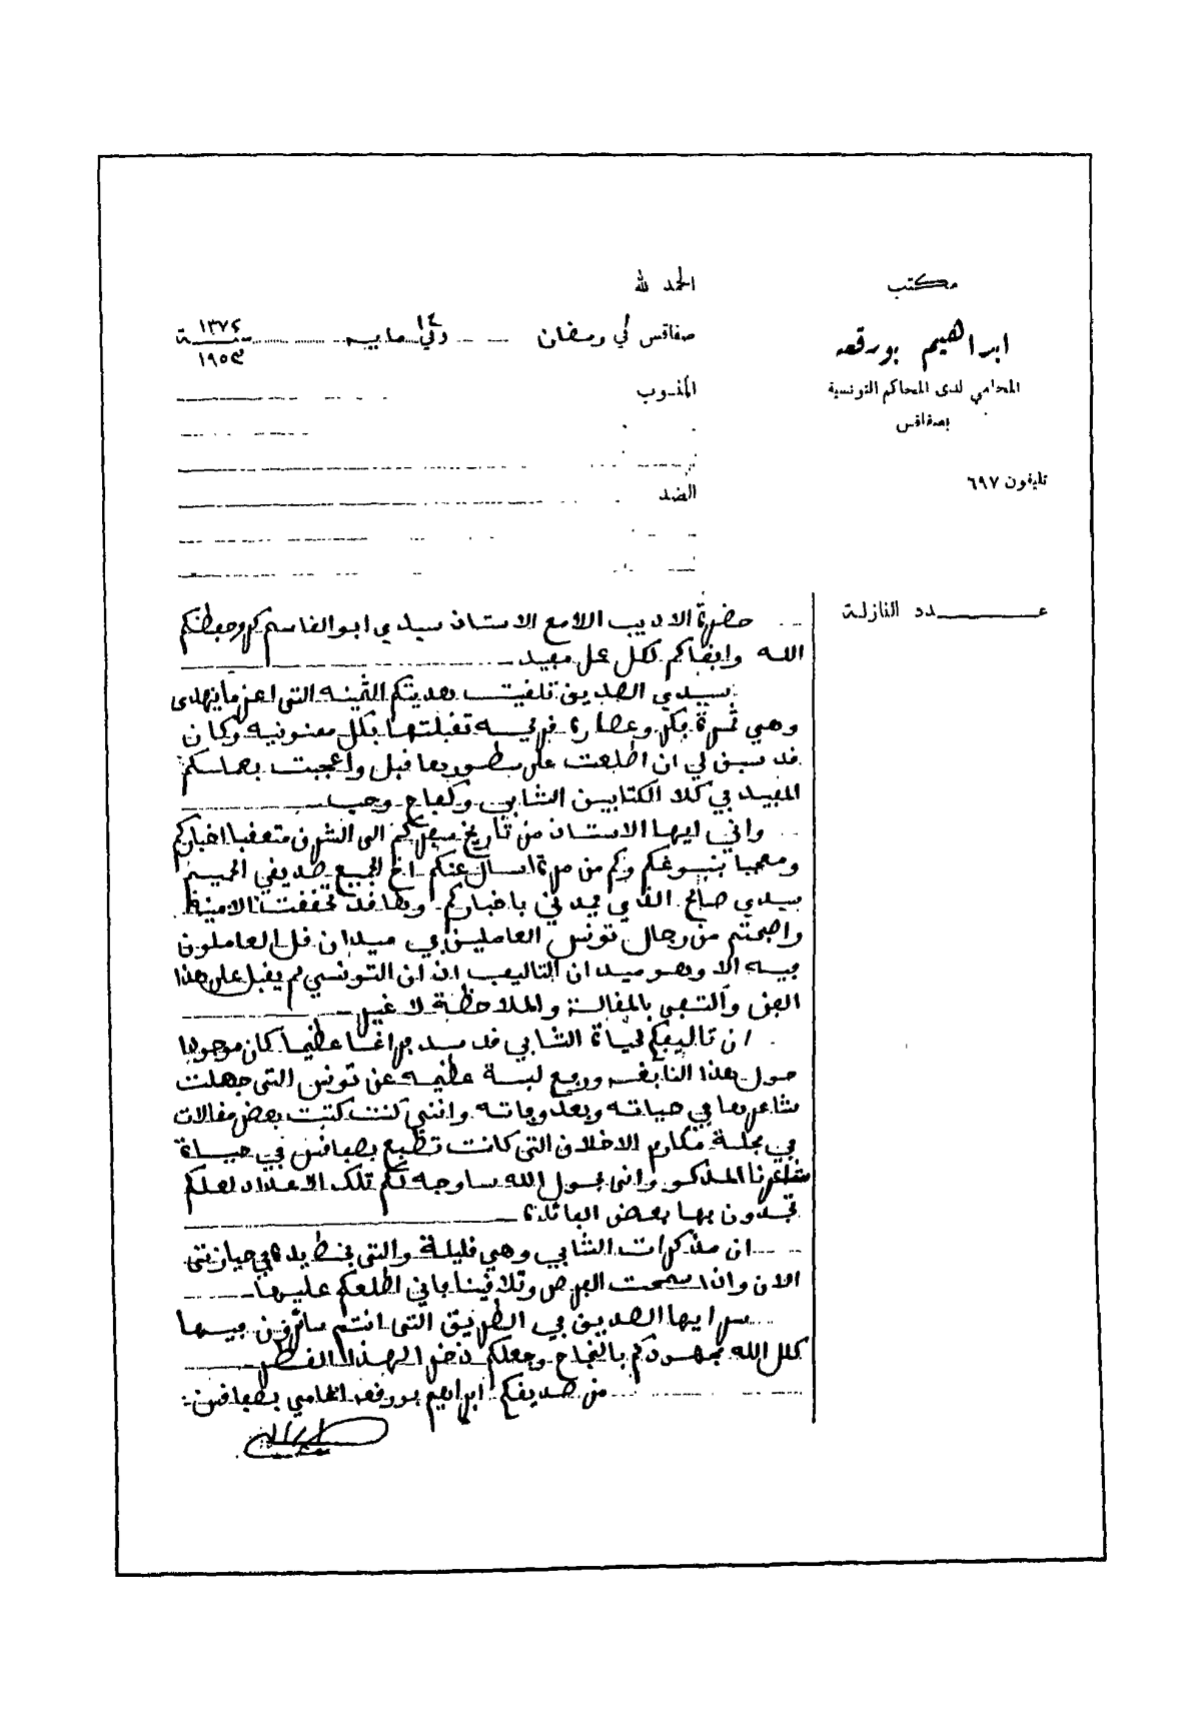 مكتب
ابراهيم بورقعه
المحامي لدى المحاكم التونسية
بصفاقس
تليفون ٦٩٧
عدد النازلة
الحمد لله
صفاقس في رمضان وفي ١٤ مايه سنة ١٣٧٢ ١٩٥٣
المنوب
الضد
حضرة الاديب اللامع الاستاذ سيدي ابو القاسم كرو حفظكم
الله وابقاكم لكل عمل مفيد
سيدي الصديق تلقيت هديتكم الثمينه التى اعز ما يهدى
وهي ثمرة فكر وعصارة قريحه تقبلتها بكل ممنونيه وكان
قد سبق لي ان اطلعت على سطورها قبل واعجبت بحماسكم
المفيد في كلا الكتابين الشابي وكفاح وحب
واني ايها الاستاذ من تاريخ سفركم الى الشرق متعقبا اخباركم
ومعجبا بنبوغكم وكم من مرة اسال عنكم اخ الجميع صديقي الحميم
سيدي صالح الذي يمدني باخباركم وها قد تحققت الامنية
واصبحتم من رجال تونس العاملين في ميدان قل العاملون
فيه الا وهو ميدان التاليف اذ ان التونسي لم يقبل على هذا
الفن واكتفى بالمقالة والملاحظة لا غير
ان تاليفكم لحياة الشابي قد سد فراغا عظيما كان موجودا
حول هذا النابغه ورفع لبسة عظيمه عن تونس التى جهلت
شاعرها في حياته وبعد وفاته وانني كنت كتبت بعض مقالات
في مجلة مكارم الاخلاق التى كانت تطبع بصفاقس في حياة
شاعرنا المذكور وانى بحول الله ساوجه لكم تلك الاعداد لعلكم
تجدون بها بعض الفائدة
ان مذكرات الشابي وهي قليلة والتى بخط يده في حيازتى
الان واذا سمحت الفرص وتلاقينا فاني اطلعكم عليها
سر ايها الصديق في الطريق التى انتم سائرون فيها
كلل الله مجهودكم بالنجاح وجعلكم ذخرا لهذا القطر
من صديقكم ابراهيم بورقعه المحامي بصفاقس